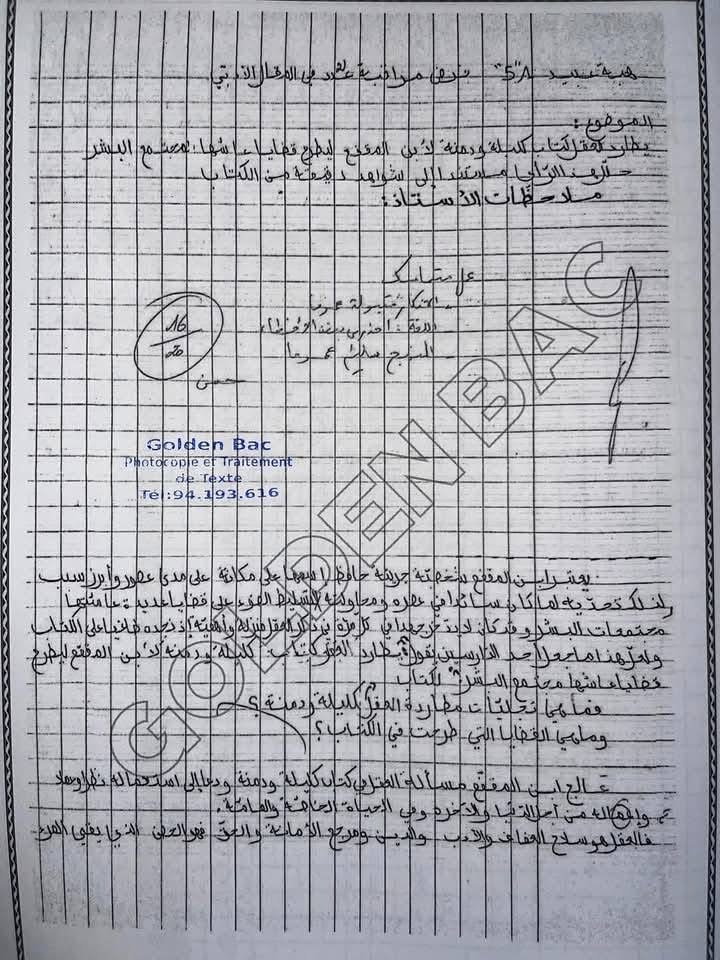 فرض مراقبة عدد في المقال الأدبي
الموضوع:
يطارد العقل كتاب كليلة ودمنة لابن المقفع ليطرح قضايا عاشها مجتمع البشر
حلل هذا الرأي مستندا إلى شواهد دقيقة من الكتاب
ملاحظات الأستاذ:
عمل متماسك
- أفكار مقبولة عموما
- اللغة: بعض الأخطاء
- المنهج سليم عموما
16
20
حسن
Golden Bac
Photocopie et Traitement
de Texte
Tél:94.193.616
GOLDEN BAC
يعتبر ابن المقفع شخصية جريئة حافظ اسمها على مكانة على مدى عصور وأبرز سبب
لذلك تحديه لما كان سائدا في عصره ومحاولته لتسليط الضوء على قضايا عديدة عاشتها
مجتمعات البشر وقد كان لا يدخر جهدا في كل مرة في ذكر العقل منزلة وأهميّة إذ نجده طاغيا على الكتاب
ولعل هذا ما جعل أحد الدارسين يقول "يطارد العقل كتاب كليلة ودمنة لابن المقفع ليطرح
قضايا عاشها مجتمع البشر"
فما هي تجليات مطاردة العقل لكليلة ودمنة؟
وما هي القضايا التي طرحت في الكتاب؟
عالج ابن المقفع مسألة العقل في كتاب كليلة ودمنة ودعا إلى استعماله نظرا
من أجل الدنيا والآخرة وفي الحياة الخاصّة والعامّة.
فالعقل هو سلاح العفاف والأدب والدين ومرجع الأمانة والحق فهو الحصن الذي يقي المرء